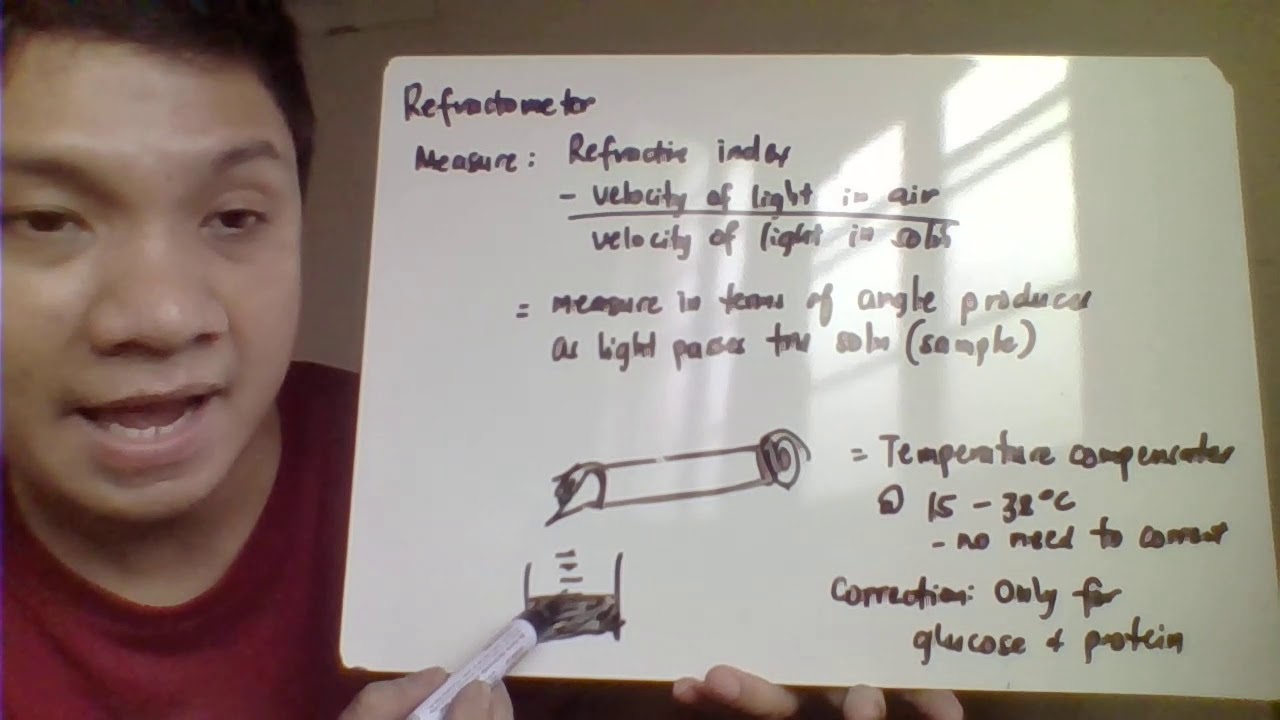 Refractometer
Measure: Refractive index
- velocity of light in air
velocity of light in soln
= measure in terms of angle produces
as light passes thru soln (sample)
= Temperature compensates
@ 15 - 38°C
- no need to correct
Correction: Only for
glucose & protein